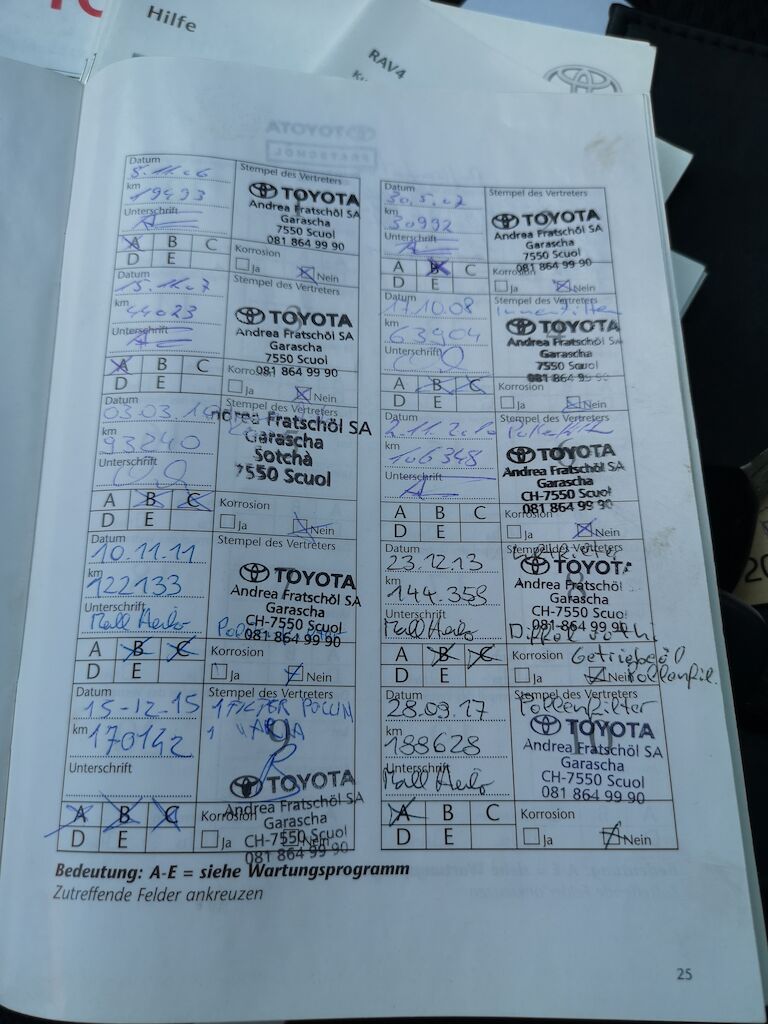 Hilfe
RAV4
TOYOTA
FRATSCHÖL
Datum
8.11.06
km
19493
Unterschrift
A B C
D E
Stempel des Vertreters
TOYOTA
Andrea Fratschöl SA
Garascha
7550 Scuol
081 864 99 90
Korrosion
Ja Nein
Datum
30.5.07
km
30992
Unterschrift
A B C
D E
Stempel des Vertreters
TOYOTA
Andrea Fratschöl SA
Garascha
7550 Scuol
081 864 99 90
Korrosion
Ja Nein
Datum
15.11.07
km
44023
Unterschrift
A B C
D E
Stempel des Vertreters
TOYOTA
Andrea Fratschöl SA
Garascha
7550 Scuol
081 864 99 90
Korrosion
Ja Nein
Datum
17.10.08
km
63904
Unterschrift
A B C
D E
Stempel des Vertreters
TOYOTA
Andrea Fratschöl SA
Garascha
7550 Scuol
081 864 99 90
Korrosion
Ja Nein
Datum
03.03.
km
93240
Unterschrift
A B C
D E
Stempel des Vertreters
Andrea Fratschöl SA
Garascha
Sotchà
7550 Scuol
Korrosion
Ja Nein
Datum
km
106348
Unterschrift
A B C
D E
Stempel des Vertreters
TOYOTA
Andrea Fratschöl SA
Garascha
CH-7550 Scuol
081 864 99 90
Korrosion
Ja Nein
Datum
10.11.11
km
122133
Unterschrift
A B C
D E
Stempel des Vertreters
TOYOTA
Andrea Fratschöl SA
Garascha
CH-7550 Scuol
081 864 99 90
Korrosion
Ja Nein
Datum
23.12.13
km
144.358
Unterschrift
A B C
D E
Stempel des Vertreters
TOYOTA
Andrea Fratschöl
Garascha
CH-7550 Scuo
081 864 99 90
Korrosion Getriebeöl
Ja Nein Pollenfil.
Datum
15-12.15
km
170142
Unterschrift
A B C
D E
Stempel des Vertreters
1 FILTER POLLIN
9
TOYOTA
Andrea Fratschöl SA
Garascha
CH-7550 Scuol
081 864 99 90
Korrosion
Ja Nein
Datum
28.09.17
km
188628
Unterschrift
A B C
D E
Stempel des Vertreters
Pollenfilter
TOYOTA
Andrea Fratschöl SA
Garascha
CH-7550 Scuol
081 864 99 90
Korrosion
Ja Nein
Bedeutung: A-E = siehe Wartungsprogramm
Zutreffende Felder ankreuzen
25